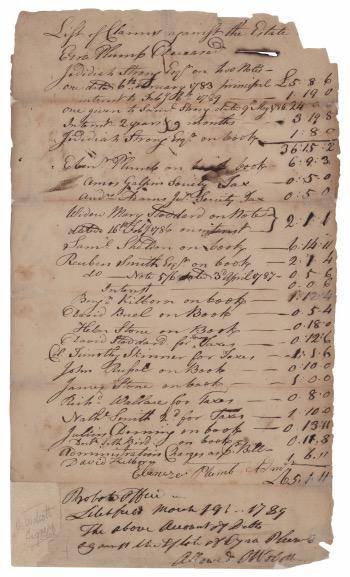 List of Claims against the Estate
Ezra Plumb Deceased
Jedidiah Strong Esqr on two Notes
one dated 6th January 1783 principal £5 8 6
interest to Feby 1789 1 19 0
one given to Saml Story date 9 May 1786 24
Interest 2 years 9 months 3 19 8
Jedidiah Strong Esqr on book 1 : 8 0
36 15 2
Ebenr Plumb on book 6 : 9 : 3
Amos Galpin Society Tax 0 : 5 : 0
Andw Adams Jur Society Tax 0 : 5 0
Widow Mary Stoddard on Note
dated 16th Feby 1786 on interest 2 : 1 1
Saml Sheldon on book 6 : 14 : 11
Reuben Smith Esqr on book 2 : 1 4
do Note 5/6 dated 3d April 1787 0 : 5 6
Interest 0 0 6
Benj Kilborn on book 1 : 12 : 4
David Buel on Book 0 : 5 4
Heber Stone on Book 0 : 18 0
David Stoddard for Taxes 0 : 12 : 6
Timothy Skinner for Taxes 1 : 5 6
John on Book 0 : 10 0
James Stone on book 1 : 0 : 0
Richd Wallace for Taxes 0 : 8 : 0
Nathl Smith 2d for Taxes 1 : 10 : 0
on book 0 : 13 :
Seth Bird on book 0 : 11 : 8
Administration Charges as Bill
David 1 6 11
Ebenezer Plumb Admr
£65 1 11
Probate Office
Litchfield March 1789
The above Account of Debts
against the Estate of Ezra Plumb
Allowed